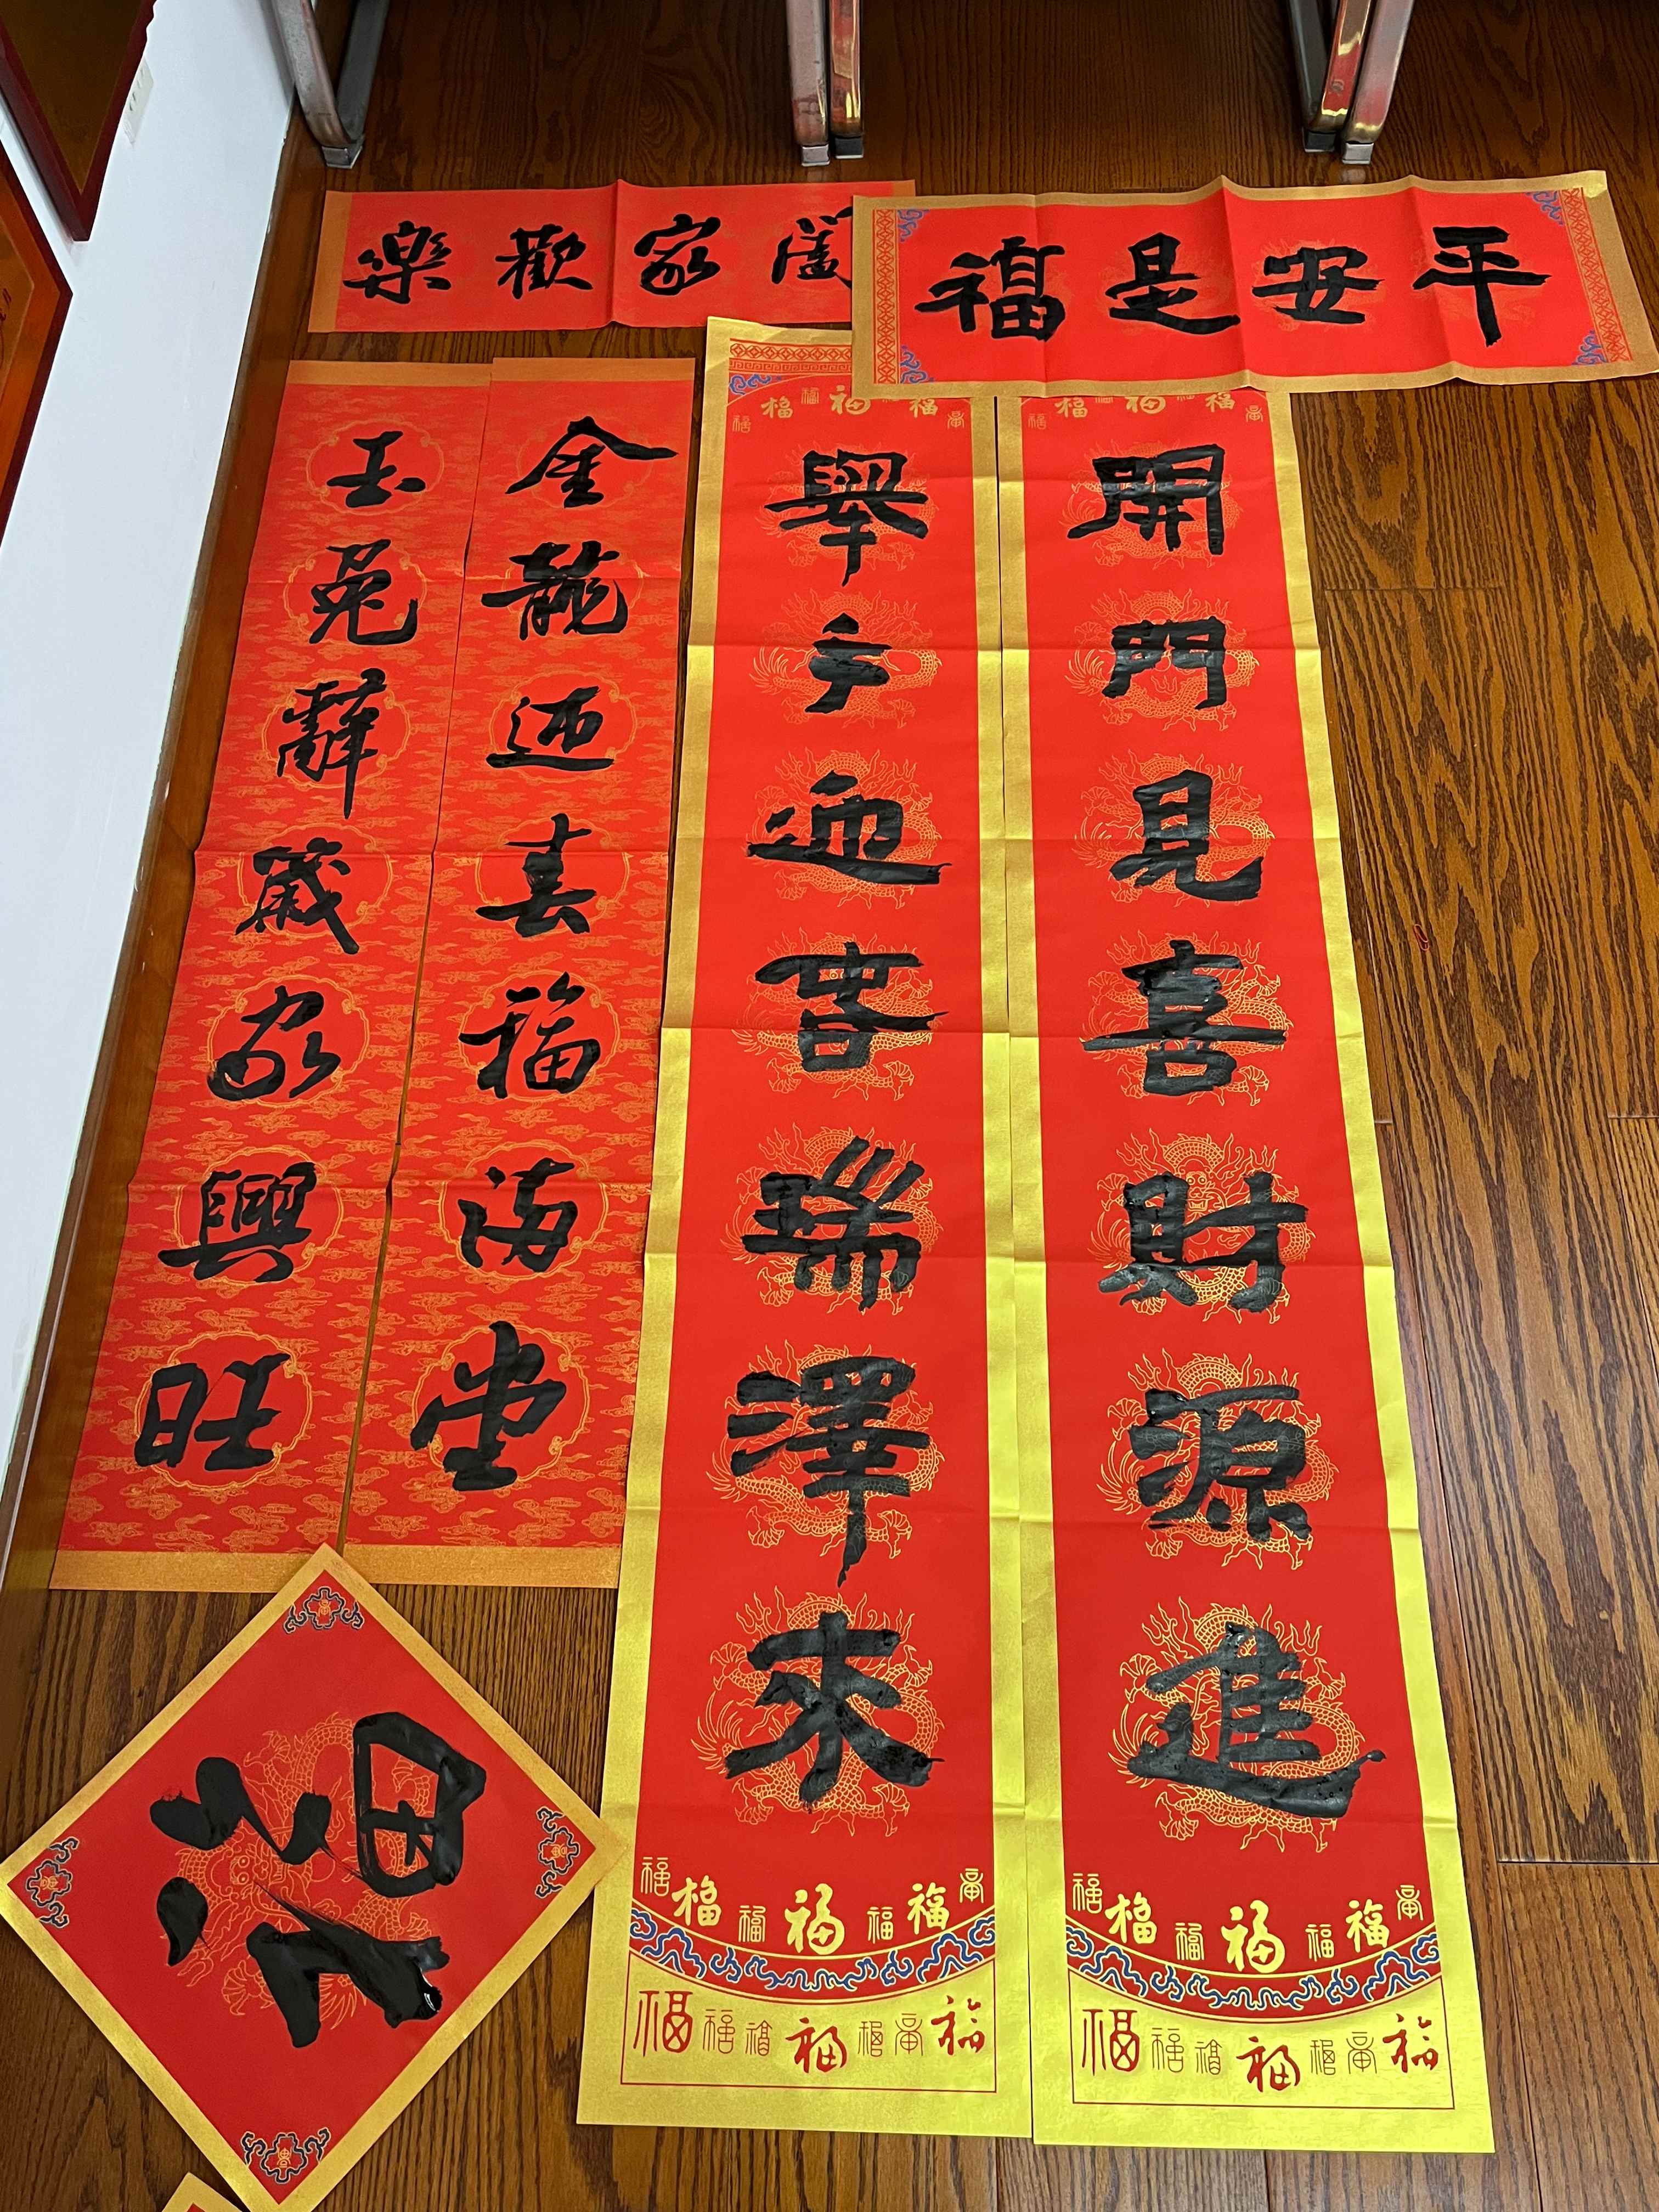 平安是福
開門見喜財源進
舉步迎春瑞澤來
闔家歡樂
金龍迎春福滿堂
玉兔辭歲家興旺
福
福福福福福福福
福福福福福福福
福福福福福福福
福福福福福福福